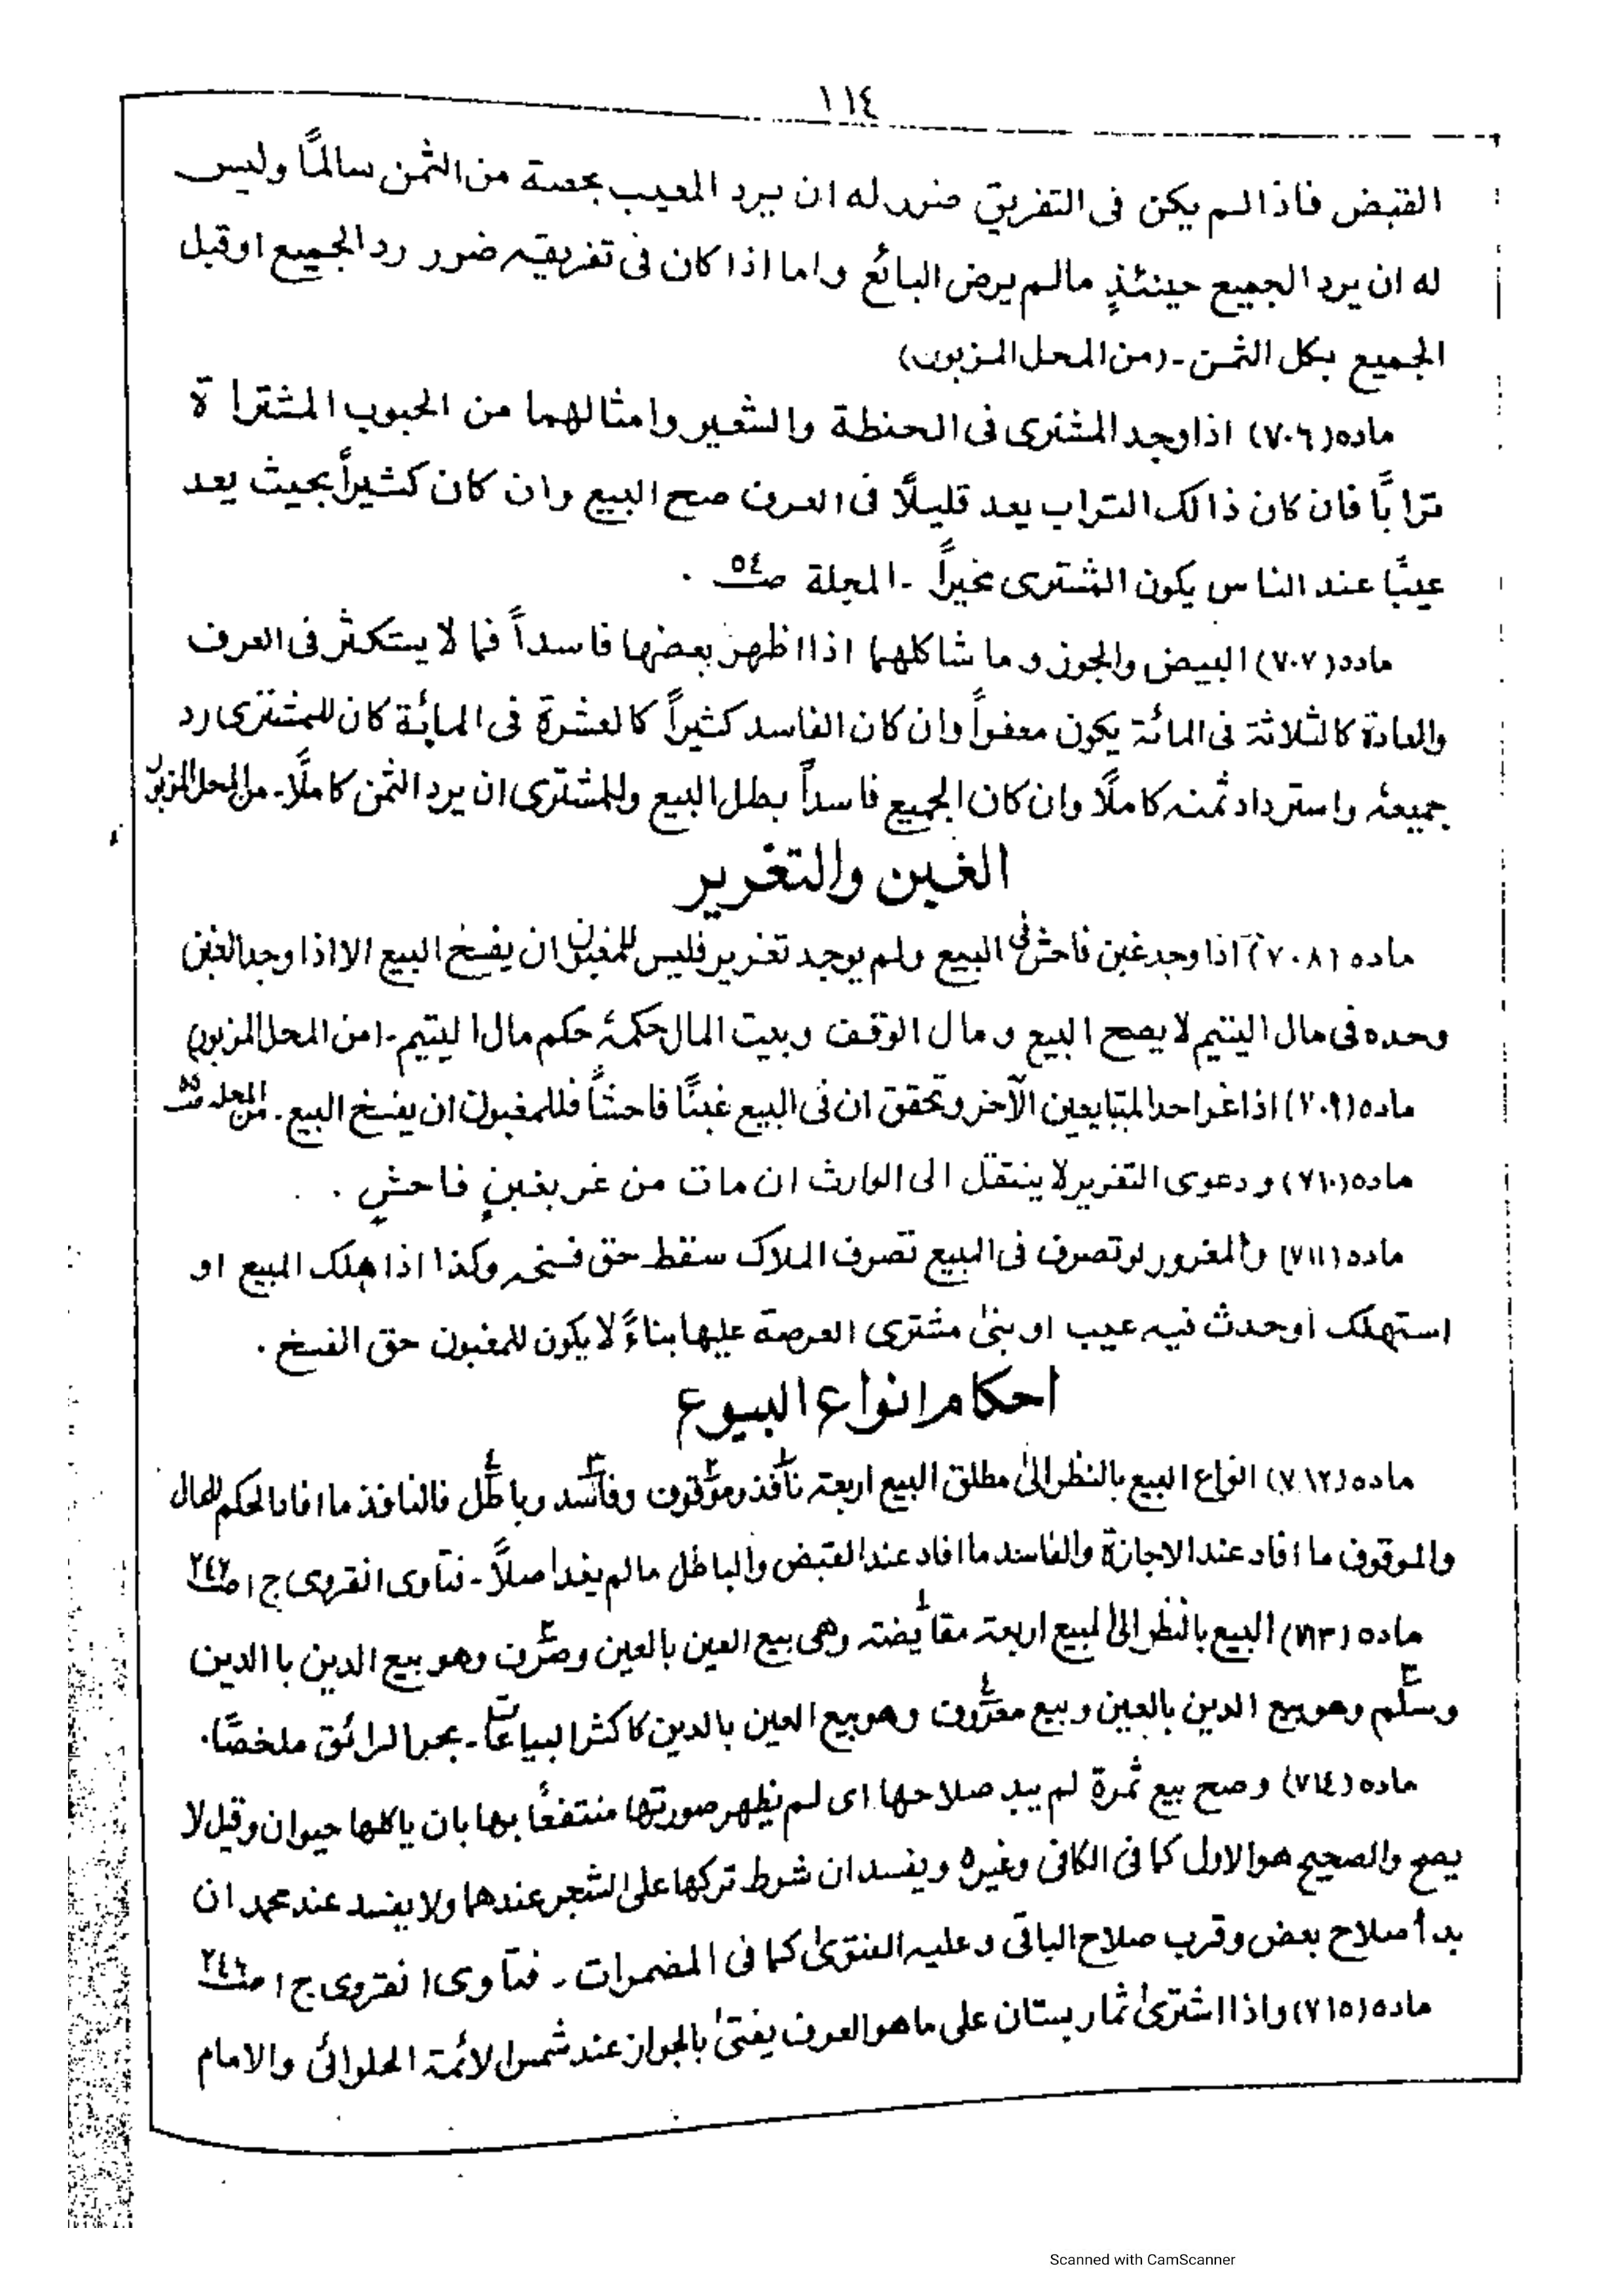 ١١٤
القبض فاذالم يكن فى التفريق ضررله ان يرد المعيب بحصة من الثمن سالمًا وليس
له ان يرد الجميع حينئذٍ مالم يرض البائع واما اذا كان فى تفريقه ضرر رد الجميع اوقبل
الجميع بكل الثمن ـ (من المحل المزبور)
ماده(٧٠٦) اذا وجد المشترى فى الحنطة والشعير وامثالهما من الحبوب المشتراة
ترابًا فان كان ذالك التراب يعد قليلًا فى العرف صح البيع وان كان كثيراً بحيث يعد
عيبًا عند الناس يكون المشترى مخيراً ـ المجلة صـ٥٤ .
ماده(٧٠٧) البيض والجوز و ما شاكلهما اذا اظهر بعضها فاسداً فما لا يستكثر فى العرف
والعادة كالثلاثة فى المائة يكون معفواً وان كان الفاسد كثيراً كالعشرة فى المائة كان للمشترى رد
جميعه واسترداد ثمنه كاملًا وان كان الجميع فاسداً بطل البيع وللمشترى ان يرد الثمن كاملًا ـ من المحل المزبور
الغبن والتغرير
ماده (٧٠٨) اذا وجد غبن فاحش فى البيع ولم يوجد تغرير فليس للمغبون ان يفسخ البيع الا اذا وجد الغبن
وحده فى مال اليتيم لا يصح البيع و مال الوقف وبيت المال حكمهٔ حكم مال اليتيم ـ (من المحل المزبور)
ماده(٧٠٩) اذا غر احد المتبايعين الآخر وتحقق ان فى البيع غبنًا فاحشًا فللمغبون ان يفسخ البيع . من المجلة صـ٥٥
ماده(٧١٠) و دعوى التغرير لا ينتقل الى الوارث ان مات من غر بغبنٍ فاحشٍ .
ماده(٧١١) والمغرور لو تصرف فى المبيع تصرف الملاك سقط حق فسخه وكذا اذا هلك المبيع او
استهلك اوحدث فيه عيب او بنىٰ مشترى العرصة عليها بناءً لا يكون للمغبون حق الفسخ .
احكام انواع البيوع
ماده(٧١٢) انواع البيع بالنظر الىٰ مطلق البيع اربعة نافذ١ وموقوف٢ وفاسد٣ وباطل٤ فالنافذ ما افادا لحكم للحال
والموقوف ما افاد عند الاجازة والفاسد ما افاد عند القبض والباطل مالم يفد اصلًا ـ فتآوى انقروى ج١ صـ٢٤٢
ماده (٧١٣) البيع بالنظر الىٰ المبيع اربعة مقائضة١ وهى بيع العين بالعين وصرف٢ وهو بيع الدين با الدين
وسلم٣ وهو بيع الدين بالعين وبيع معروف٤ وهو بيع العين بالدين كاكثر البياعات ـ بحر الرائق ملخصًا.
ماده(٧١٤) وصح بيع ثمرة لم يبد صلاحها اى لم يظهر صورتها منتفعًا بها بان ياكلها حيوان وقيل لا
يصح والصحيح هو الاول كما فى الكافى وغيره ويفسد ان شرط تركها على الشجر عندهما ولا يفسد عند محمد ان
بدأ صلاح بعض وقرب صلاح الباقى وعليه الفتوىٰ كما فى المضمرات ـ فتآوى انقروى ج١ صـ٢٤٦
ماده(٧١٥) واذا اشترىٰ ثمار بستان على ما هو العرف يفتىٰ بالجواز عند شمس الائمة الحلوائى والامام
Scanned with CamScanner